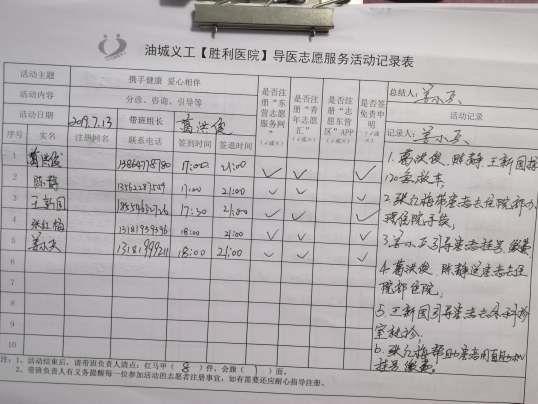 油城义工【胜利医院】导医志愿服务活动记录表
活动主题 携手健康 爱心相伴
活动内容 分诊、咨询、引导等
活动日期 2019.7.13 带班组长 葛洪俊
是否注册“东营志愿服务网”(√或×)
是否注册“青年志愿汇”(√或×)
是否注册“志愿东营区”APP(√或×)
是否签免责申明(√或×)
总结人:
活动记录
记录人:
序号 实名 注册网名 联系电话 签到时间 签退时间
1 葛洪俊 17:00 21:00 √ √ √
2 陈静 17:00 21:00 √ √ √
3 王新国 17:30 21:00 √ √ √
4 张红梅 13181959396 18:00 21:00 √ √ √
5 18:00 21:00 √ √ √
6
7
8
9
10
1.葛洪俊、陈静、王新国接
120急救车。
2.张红梅带患者去住院部办
理住院手续。
引导患者挂号、缴费。
4.葛洪俊、陈静送患者去住
院部住院。
5.王新国引导患者去外科诊
室就诊。
6.张红梅帮助患者用自助机
挂号缴费。
注:1、活动结束后,请带班负责人清点:红马甲( 8 )件,会旗( 1 )面。
2、带班负责人有义务提醒每一位参加活动的志愿者注册事宜,如有需要还应耐心指导注册。